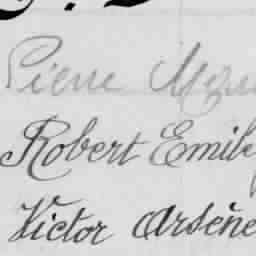 Pierre
Robert Emile
Victor Arsène